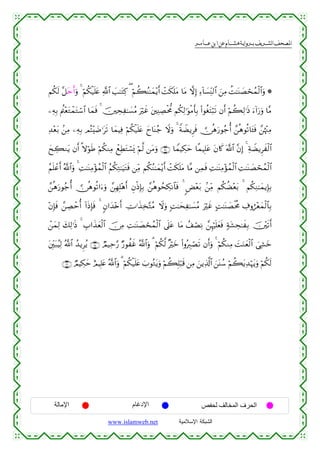 المصحف الشريف برواية هشام عن ابن عامر
۞ وَٱلۡمُحۡصَنَٰتُ مِنَ ٱلنِّسَآءِ إِلَّا مَا مَلَكَتۡ أَيۡمَٰنُكُمۡۖ كِتَٰبَ ٱللَّهِ عَلَيۡكُمۡۚ وَأَحَلَّ لَكُم
مَّا وَرَآءَ ذَٰلِكُمۡ أَن تَبۡتَغُواْ بِأَمۡوَٰلِكُم مُّحۡصِنِينَ غَيۡرَ مُسَٰفِحِينَۚ فَمَا ٱسۡتَمۡتَعۡتُم بِهِۦ
مِنۡهُنَّ فَـَٔاتُوهُنَّ أُجُورَهُنَّ فَرِيضَةٗۚ وَلَا جُنَاحَ عَلَيۡكُمۡ فِيمَا تَرَٰضَيۡتُم بِهِۦ مِنۢ بَعۡدِ
ٱلۡفَرِيضَةِۚ إِنَّ ٱللَّهَ كَانَ عَلِيمًا حَكِيمٗا وَمَن لَّمۡ يَسۡتَطِعۡ مِنكُمۡ طَوۡلًا أَن يَنكِحَ
ٱلۡمُحۡصَنَٰتِ ٱلۡمُؤۡمِنَٰتِ فَمِن مَّا مَلَكَتۡ أَيۡمَٰنُكُم مِّن فَتَيَٰتِكُمُ ٱلۡمُؤۡمِنَٰتِۚ وَٱللَّهُ أَعۡلَمُ
بِإِيمَٰنِكُمۚ بَعۡضُكُم مِّنۢ بَعۡضٖۚ فَٱنكِحُوهُنَّ بِإِذۡنِ أَهۡلِهِنَّ وَءَاتُوهُنَّ أُجُورَهُنَّ
بِٱلۡمَعۡرُوفِ مُحۡصَنَٰتٍ غَيۡرَ مُسَٰفِحَٰتٖ وَلَا مُتَّخِذَٰتِ أَخۡدَانٖۚ فَإِذَآ أُحۡصِنَّ فَإِنۡ
أَتَيۡنَ بِفَٰحِشَةٖ فَعَلَيۡهِنَّ نِصۡفُ مَا عَلَى ٱلۡمُحۡصَنَٰتِ مِنَ ٱلۡعَذَابِۚ ذَٰلِكَ لِمَنۡ
خَشِيَ ٱلۡعَنَتَ مِنكُمۡۚ وَأَن تَصۡبِرُواْ خَيۡرٞ لَّكُمۡۗ وَٱللَّهُ غَفُورٞ رَّحِيمٞ يُرِيدُ ٱللَّهُ لِيُبَيِّنَ
لَكُمۡ وَيَهۡدِيَكُمۡ سُنَنَ ٱلَّذِينَ مِن قَبۡلِكُمۡ وَيَتُوبَ عَلَيۡكُمۡۗ وَٱللَّهُ عَلِيمٌ حَكِيمٞ
الحرف المخالف لحفص الإدغام الإمالة
الشبكة الإسلامية www.islamweb.net